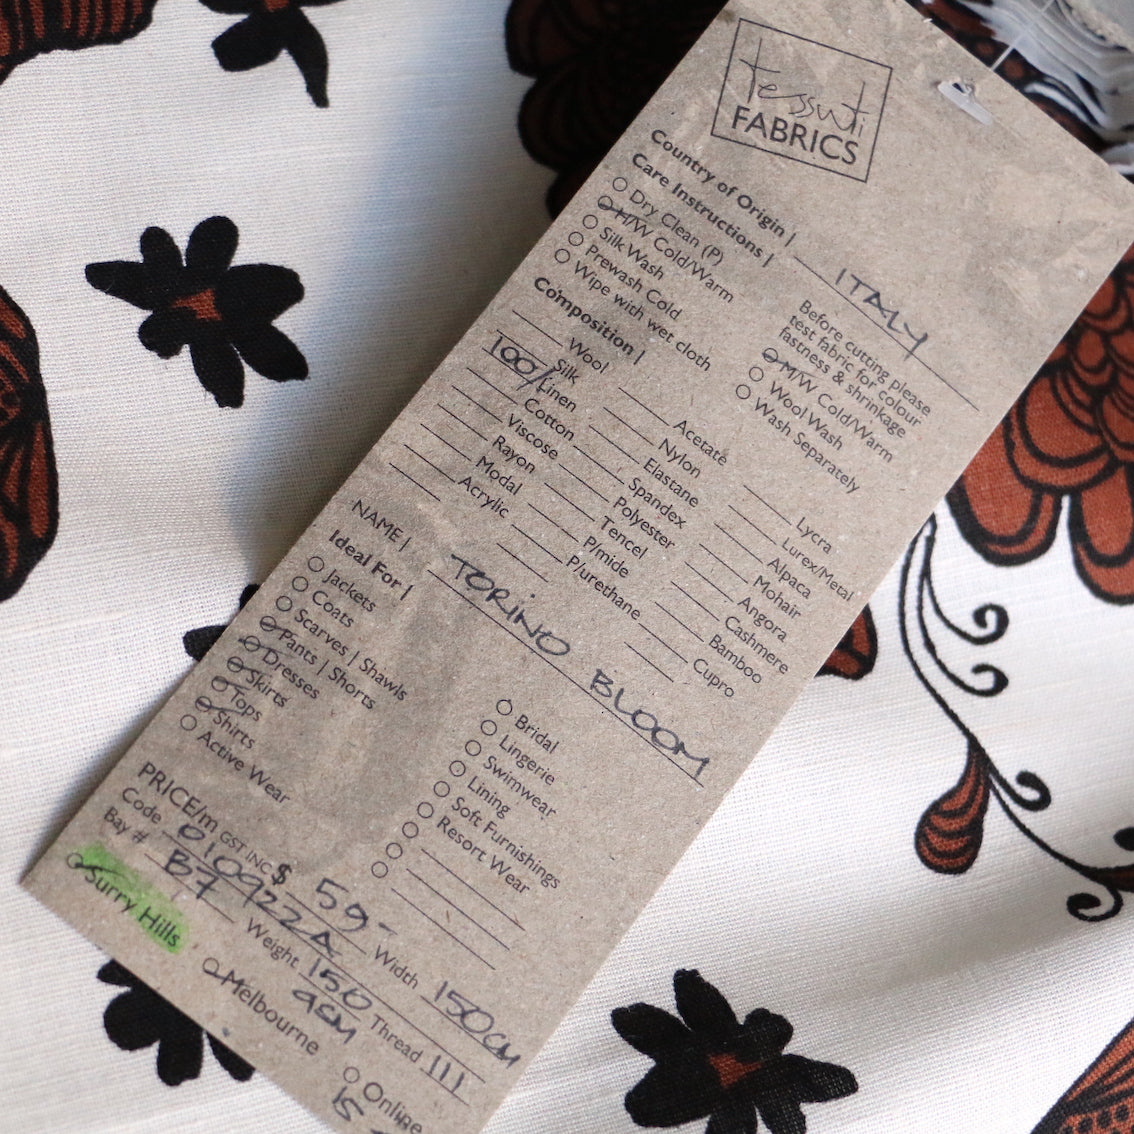 tessuti
FABRICS
Country of Origin | ITALY
Care Instructions |
Dry Clean (P)
H/W Cold/Warm
Silk Wash
Prewash Cold
Wipe with wet cloth
Before cutting please
test fabric for colour
fastness & shrinkage
M/W Cold/Warm
Wool Wash
Wash Separately
Composition |
Wool
Silk
100% Linen
Cotton
Viscose
Rayon
Modal
Acrylic
Acetate
Nylon
Elastane
Spandex
Polyester
Tencel
P/mide
P/urethane
Lycra
Lurex/Metal
Alpaca
Mohair
Angora
Cashmere
Bamboo
Cupro
NAME | TORINO BLOOM
Ideal For |
Jackets
Coats
Scarves | Shawls
Pants | Shorts
Dresses
Skirts
Tops
Shirts
Active Wear
Bridal
Lingerie
Swimwear
Lining
Soft Furnishings
Resort Wear
PRICE/m GST INC $ 59-
Code 010922A Width 150CM
Bay # B7 Weight 150 GSM Thread 111
Surry Hills
Melbourne
Online